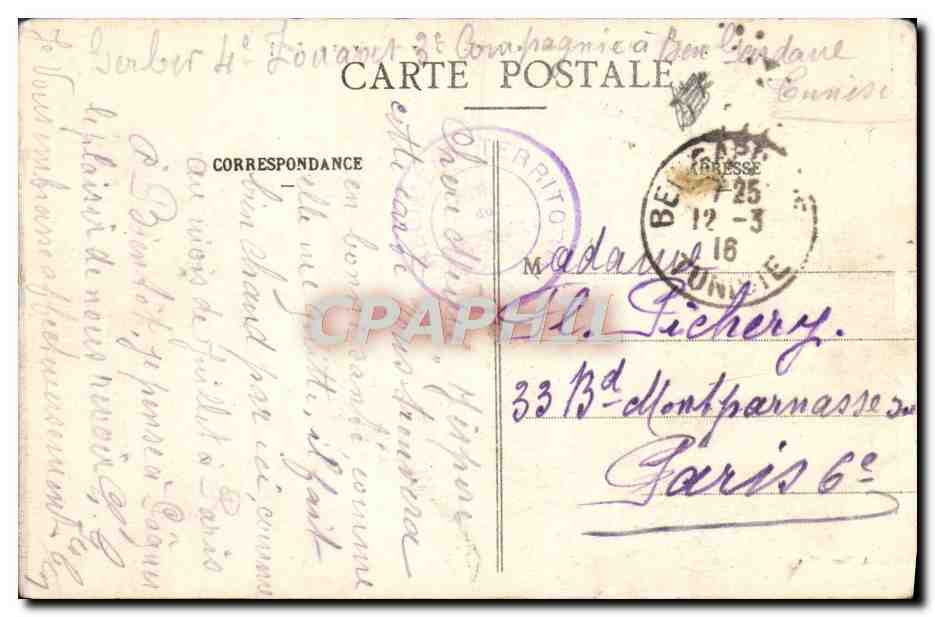 Gerber 4e Zouaves 3e Compagnie à Ben Gardane
Tunisie
CARTE POSTALE
CORRESPONDANCE
ADRESSE
Chère
J'espère
cette carte vous trouvera
en bonne santé comme
elle me quitte, il fait
bien chaud par ici, comme
au mois de Juillet à Paris
A Bientôt, je pense avoir
le plaisir de nous revoir
Je vous embrasse affectueusement
TERRITO
BEN GARDANE
7 25
12 - 3
16
TUNISIE
Madame
Fl. Pichery.
33 Bd Montparnasse
Paris 6e
CPAPHIL